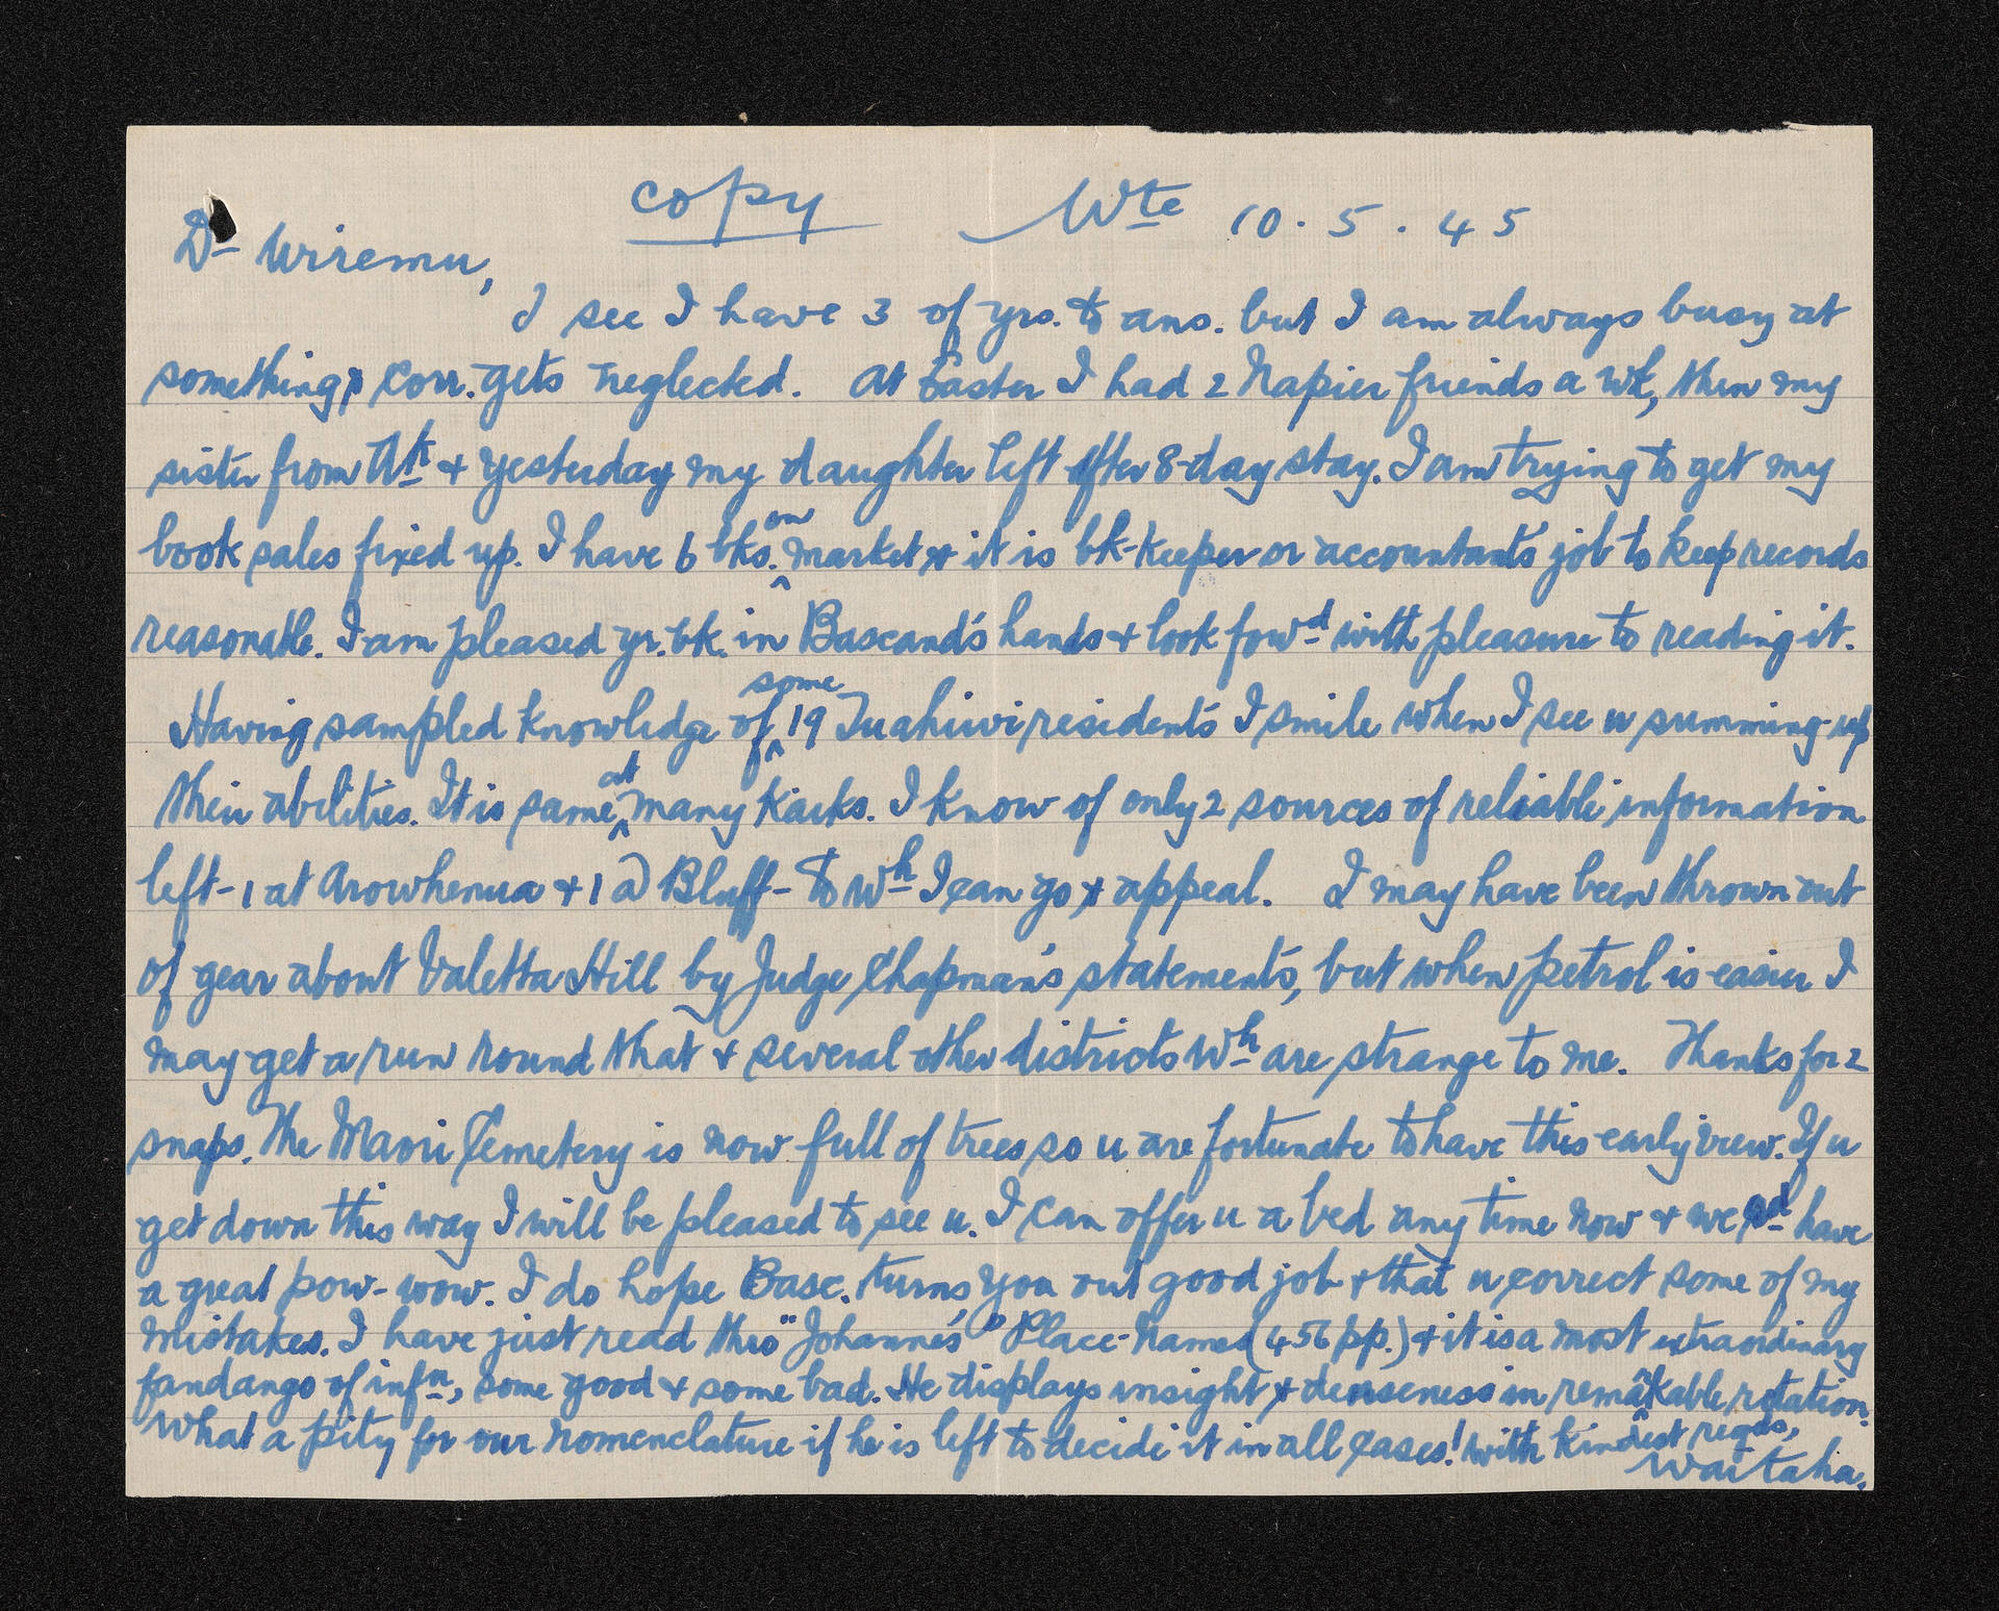 copy Wte 10.5.45
Dr Wiremu,
I see I have 3 of yrs. to ans. but I am always busy at
something & corr. gets neglected. At Easter I had 2 Napier friends a wk, then my
sister from Ak & yesterday my daughter left after 8-day stay. I am trying to get my
book sales fixed up. I have 6 bks. on market & it is bk-keeper or accountant's job to keep records
reasonable. I am pleased yr. bk. in Bascand's hands & look fowd with pleasure to reading it.
Having sampled knowledge of some 19 Tuahiwi residents I smile when I see u summing-up
their abilities. It is same at many Kaiks. I know of only 2 sources of reliable information
left - 1 at Arowhenua & 1 @ Bluff - to wh I can go & appeal. I may have been thrown out
of gear about Valetta Hill by Judge Chapman's statements, but when petrol is easier I
may get a run round that & several other districts wh are strange to me. Thanks for 2
snaps. The Maori Cemetery is now full of trees so u are fortunate to have this early view. If u
get down this way I will be pleased to see u. I can offer u a bed any time now & we cd have
a great pow-wow. I do hope Basc. turns you out good job & that u correct some of my
mistakes. I have just read thro "Johannes'" Place-Names (456 pp.) & it is a most extraordinary
fandango of infn, some good & some bad. He displays insight & denseness in remarkable rotation.
What a pity for our nomenclature if he is left to decide it in all cases! With kindest regds,
Waitaha.